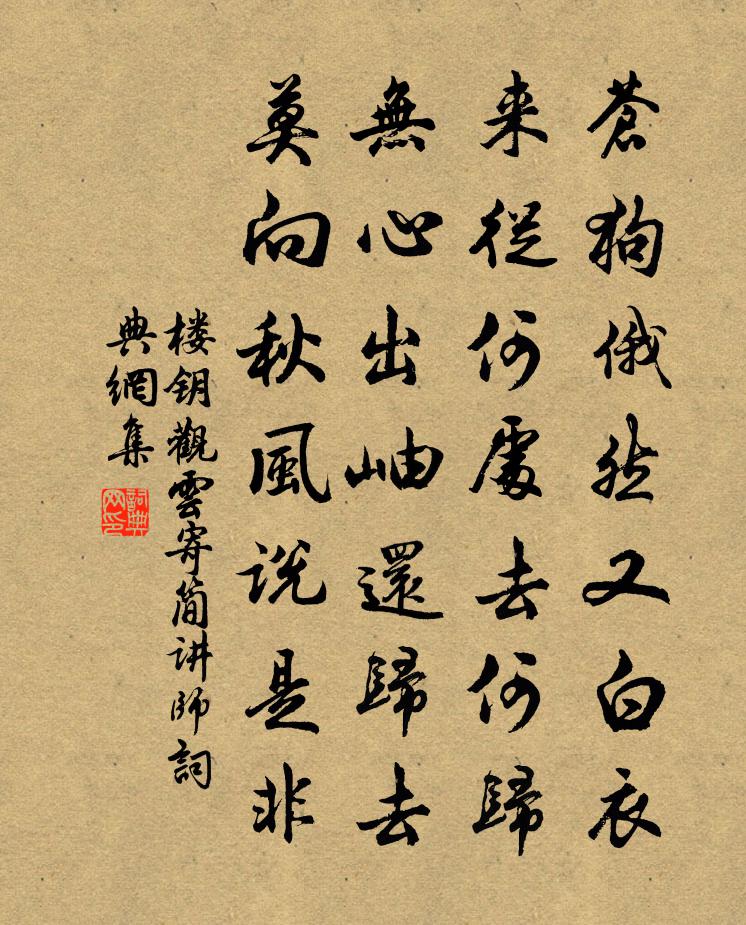 蒼狗俄然又白衣
来從何處去何歸
無心出岫還歸去
莫向秋風説是非
楼钥觀雲寄简讲师詞
典網集
詞典
网印